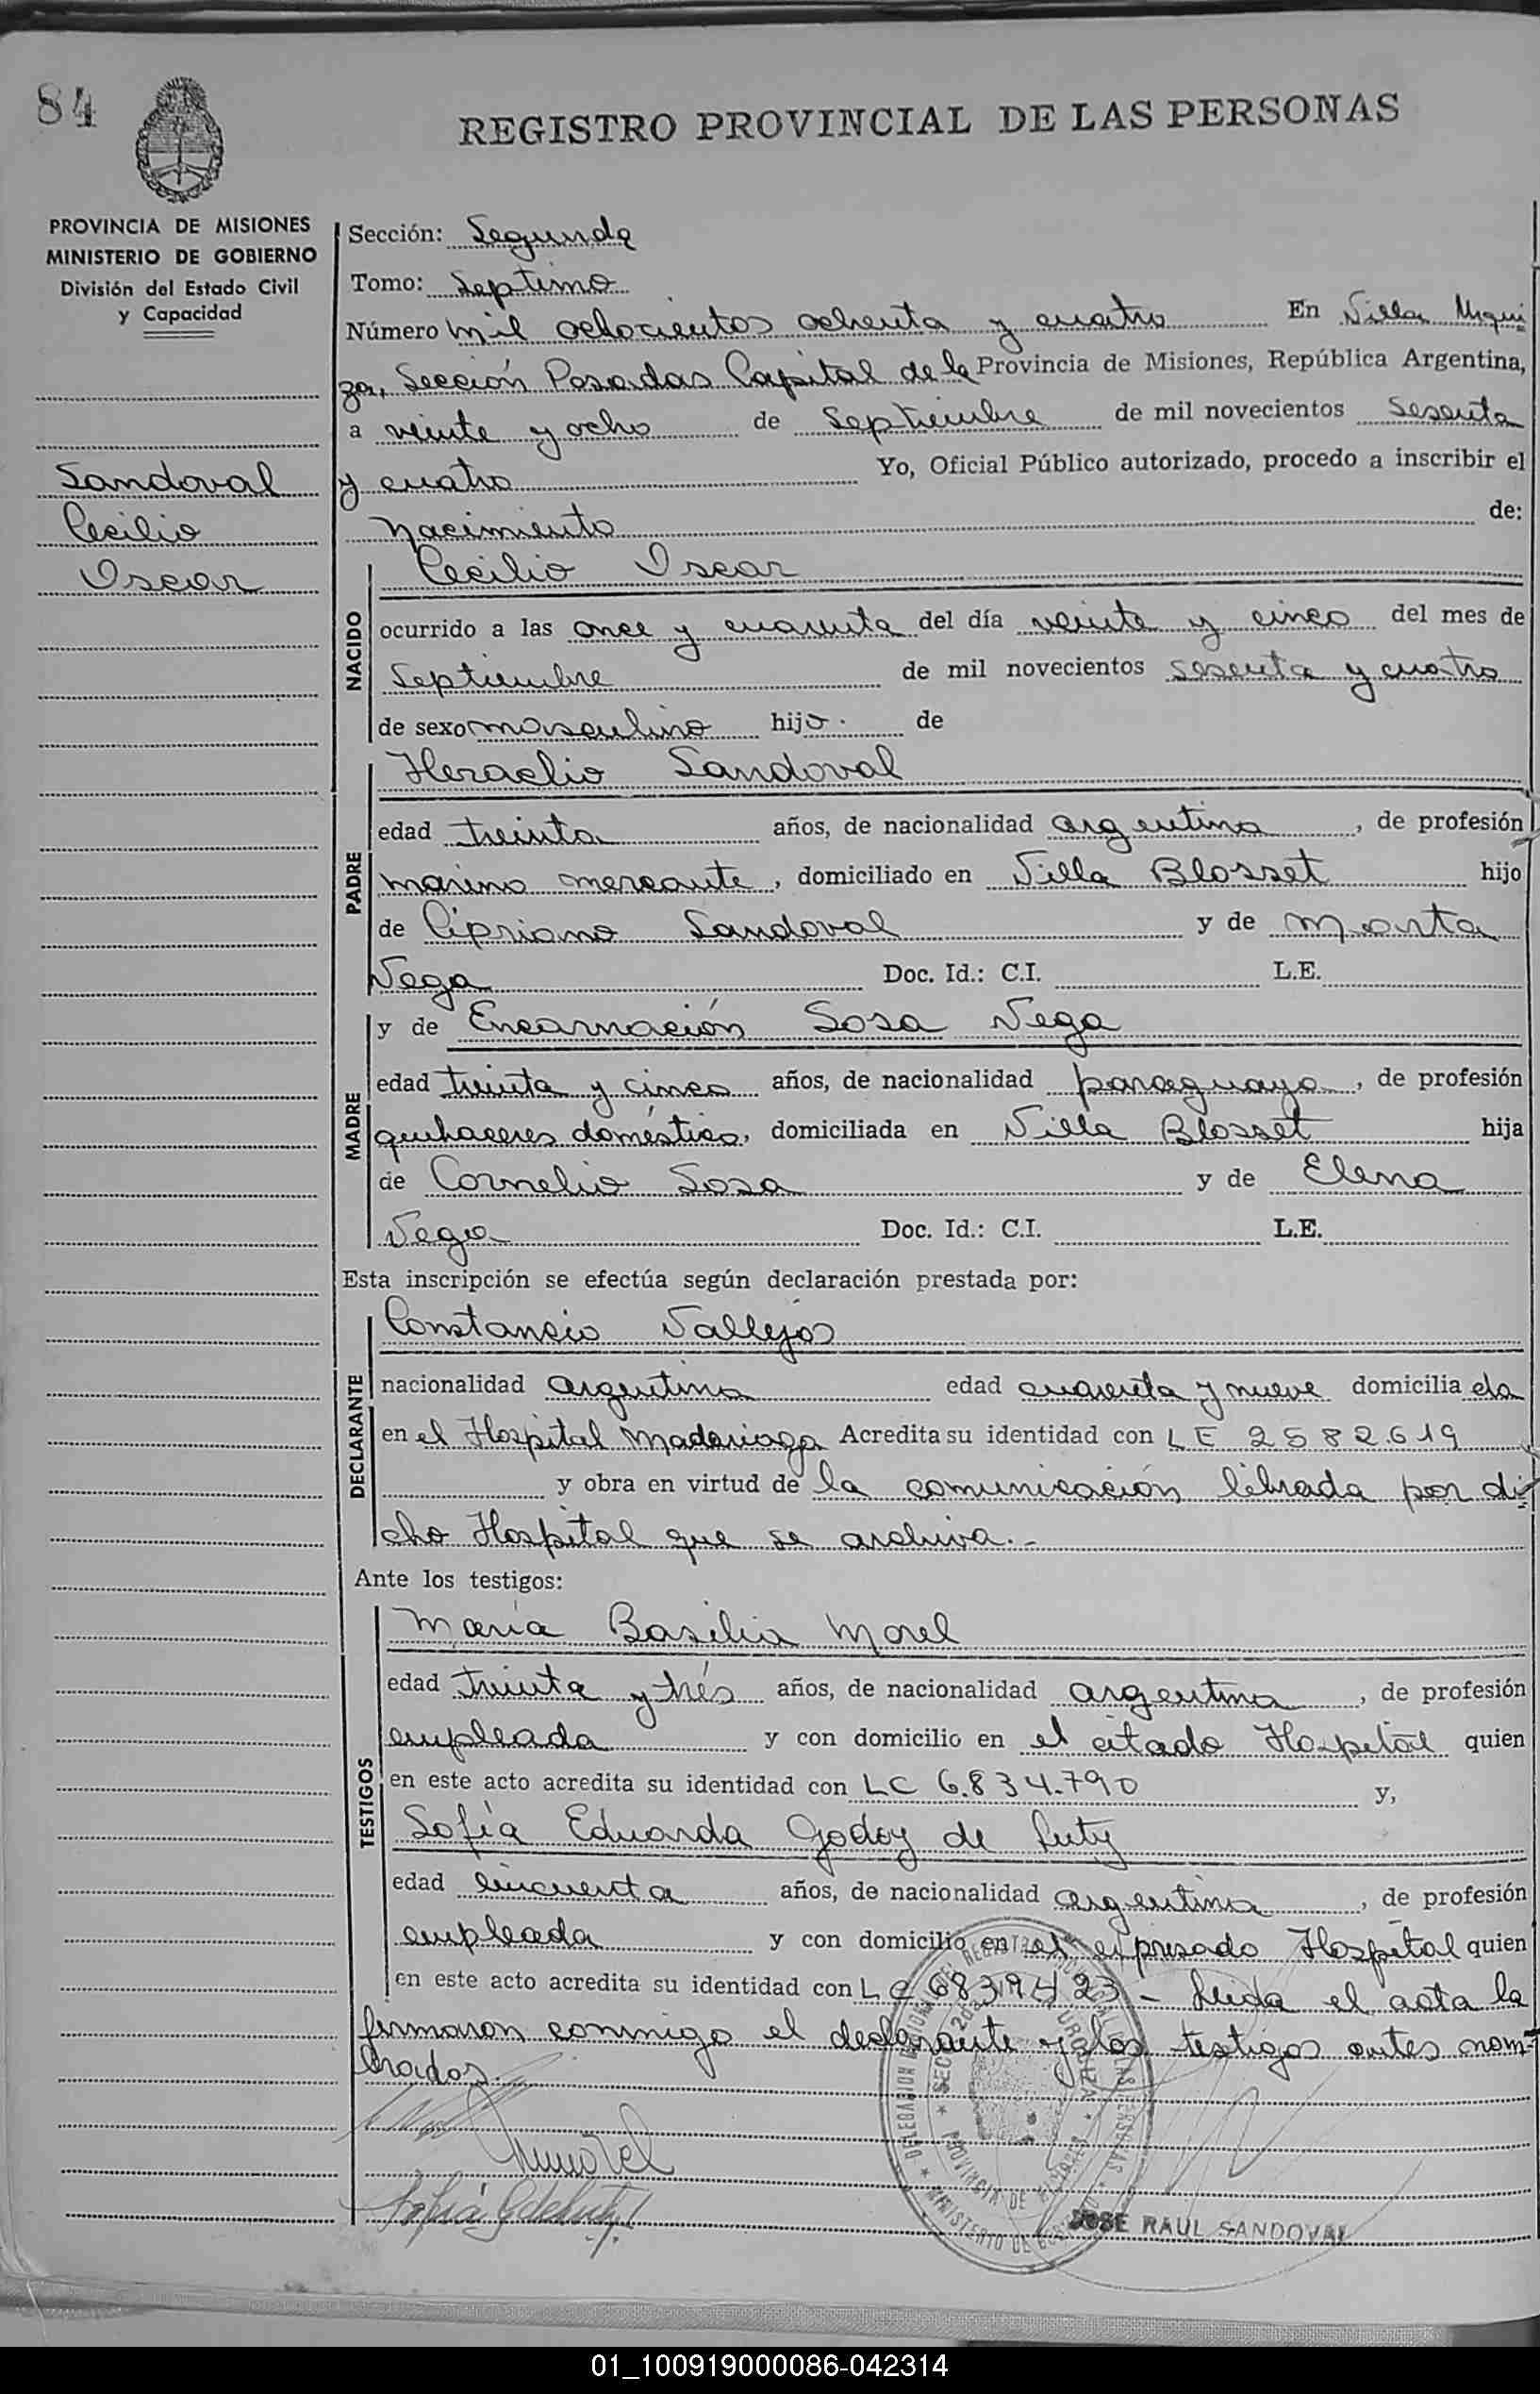 84
REGISTRO PROVINCIAL DE LAS PERSONAS
PROVINCIA DE MISIONES
MINISTERIO DE GOBIERNO
División del Estado Civil
y Capacidad
Sandoval
Cecilio
Oscar
Sección: Segunda
Tomo: Septimo
Número mil ochocientos ochenta y cuatro En Villa Urqui
za, Sección Posadas Capital de la Provincia de Misiones, República Argentina,
a veinte y ocho de Septiembre de mil novecientos Sesenta
y cuatro Yo, Oficial Público autorizado, procedo a inscribir el
nacimiento de:
NACIDO
Cecilio Oscar
ocurrido a las once y cuarenta del día veinte y cinco del mes de
Septiembre de mil novecientos sesenta y cuatro
de sexo masculino hijo. de
PADRE
Heraclio Sandoval
edad treinta años, de nacionalidad argentina, de profesión
marino mercante, domiciliado en Villa Blosset hijo
de Cipriano Sandoval y de Marta
Vega Doc. Id.: C.I. L.E.
MADRE
y de Encarnación Sosa Vega
edad treinta y cinco años, de nacionalidad paraguaya, de profesión
quehaceres domésticos, domiciliada en Villa Blosset hija
de Cornelio Sosa y de Elena
Vega Doc. Id.: C.I. L.E.
Esta inscripción se efectúa según declaración prestada por:
DECLARANTE
Constancio Vallejos
nacionalidad argentina edad cuarenta y nueve domicilia do
en el Hospital Madariaga Acredita su identidad con LE 2582.619
y obra en virtud de la comunicación librada por di
cho Hospital que se archiva.-
Ante los testigos:
TESTIGOS
María Basilia Morel
edad treinta y trés años, de nacionalidad argentina, de profesión
empleada y con domicilio en el citado Hospital quien
en este acto acredita su identidad con LC 6.834.790 y,
Sofía Eduarda Godoy de Luty
edad cincuenta años, de nacionalidad argentina, de profesión
empleada y con domicilio en el expresado Hospital quien
en este acto acredita su identidad con LC 6839423 - Leida el acta la
firmaron conmigo el declarante y los testigos antes nom-
brados.
JOSE RAUL SANDOVAL
01_100919000086-042314